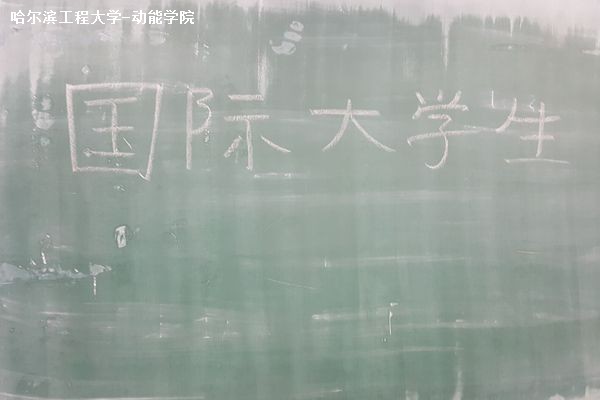 哈尔滨工程大学-动能学院
国际大学生